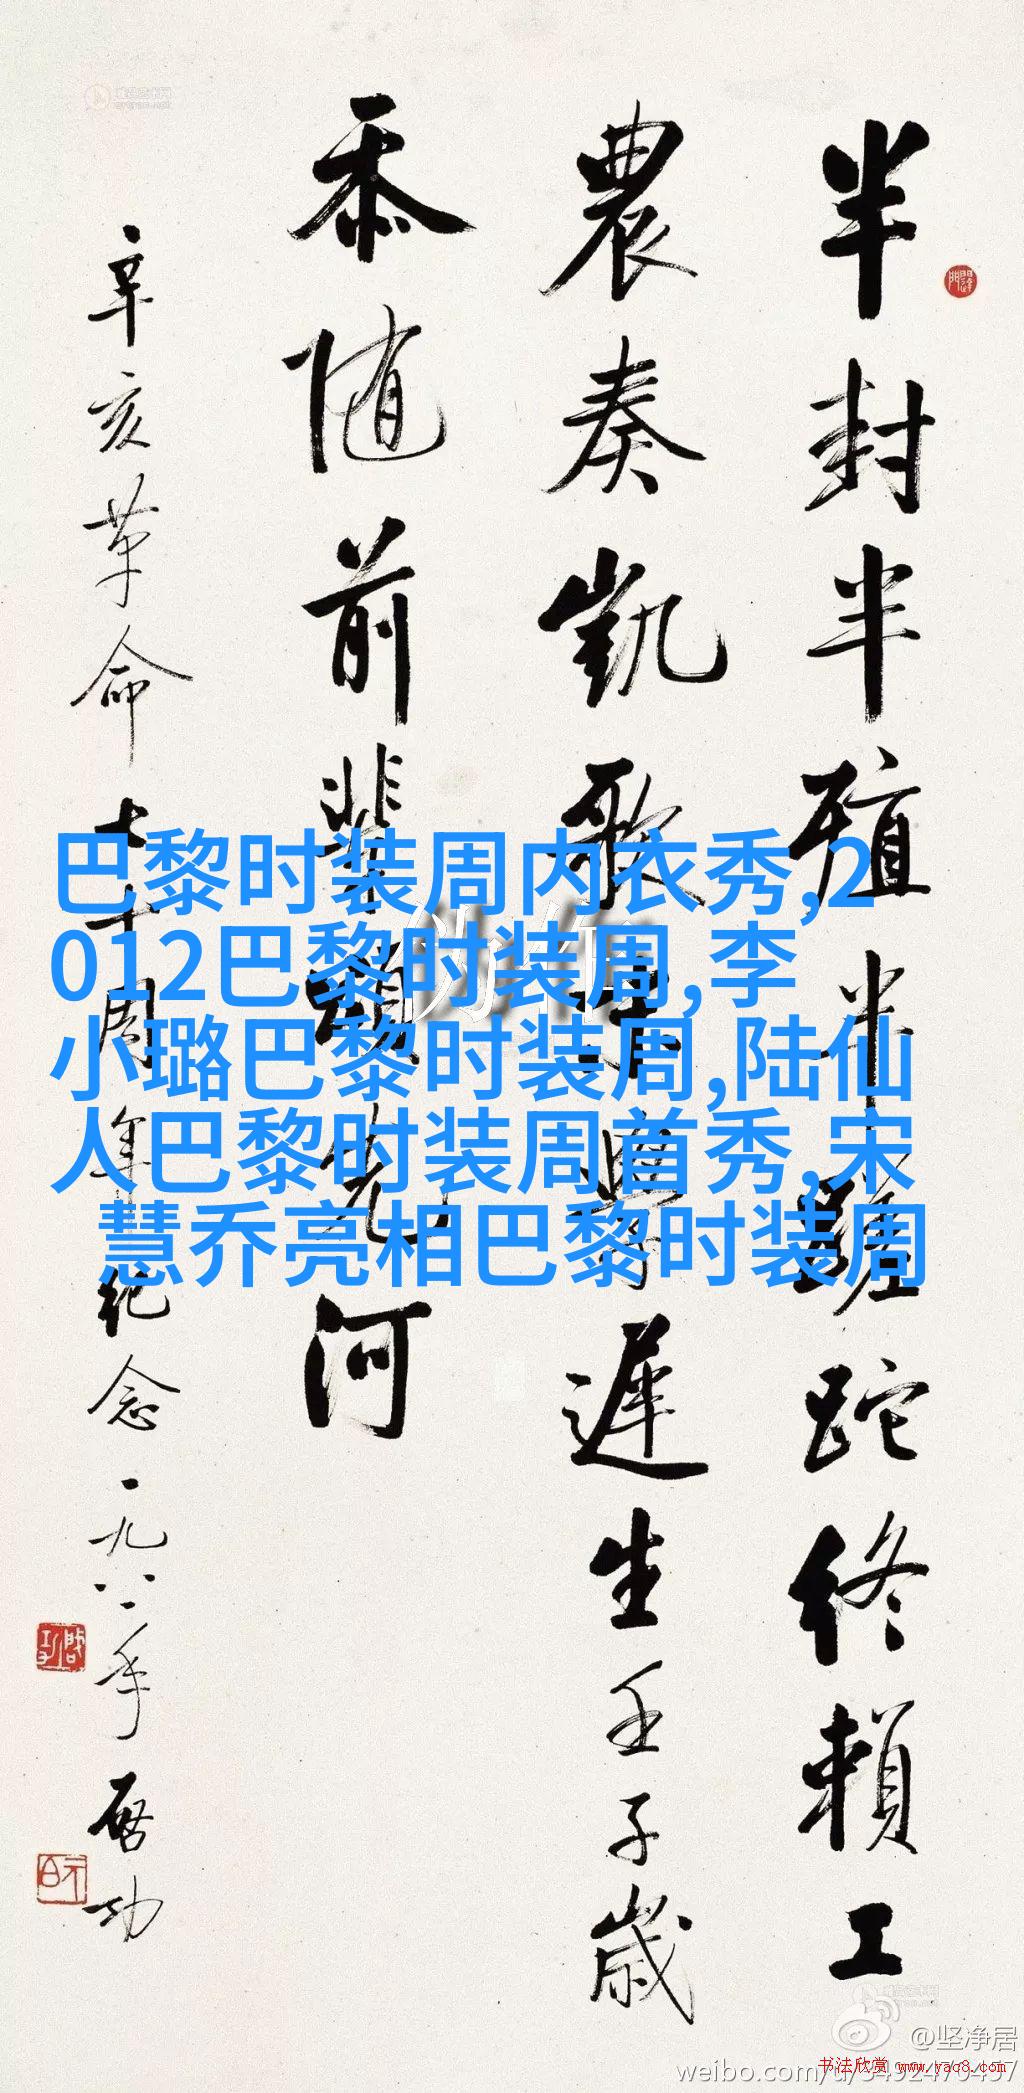 半封半殖半蹉跎终賴工
農奏凱歌 遲生壬子歲
忝随前輩頌先河
辛亥革命七十周年纪念一九八一年啓功
巴黎时装周内衣秀,2
012巴黎时装周,李
小璐巴黎时装周,陆仙
人巴黎时装周首秀,宋
慧乔亮相巴黎时装周
伪作
@坚净居
书法欣赏 www.yac8.com